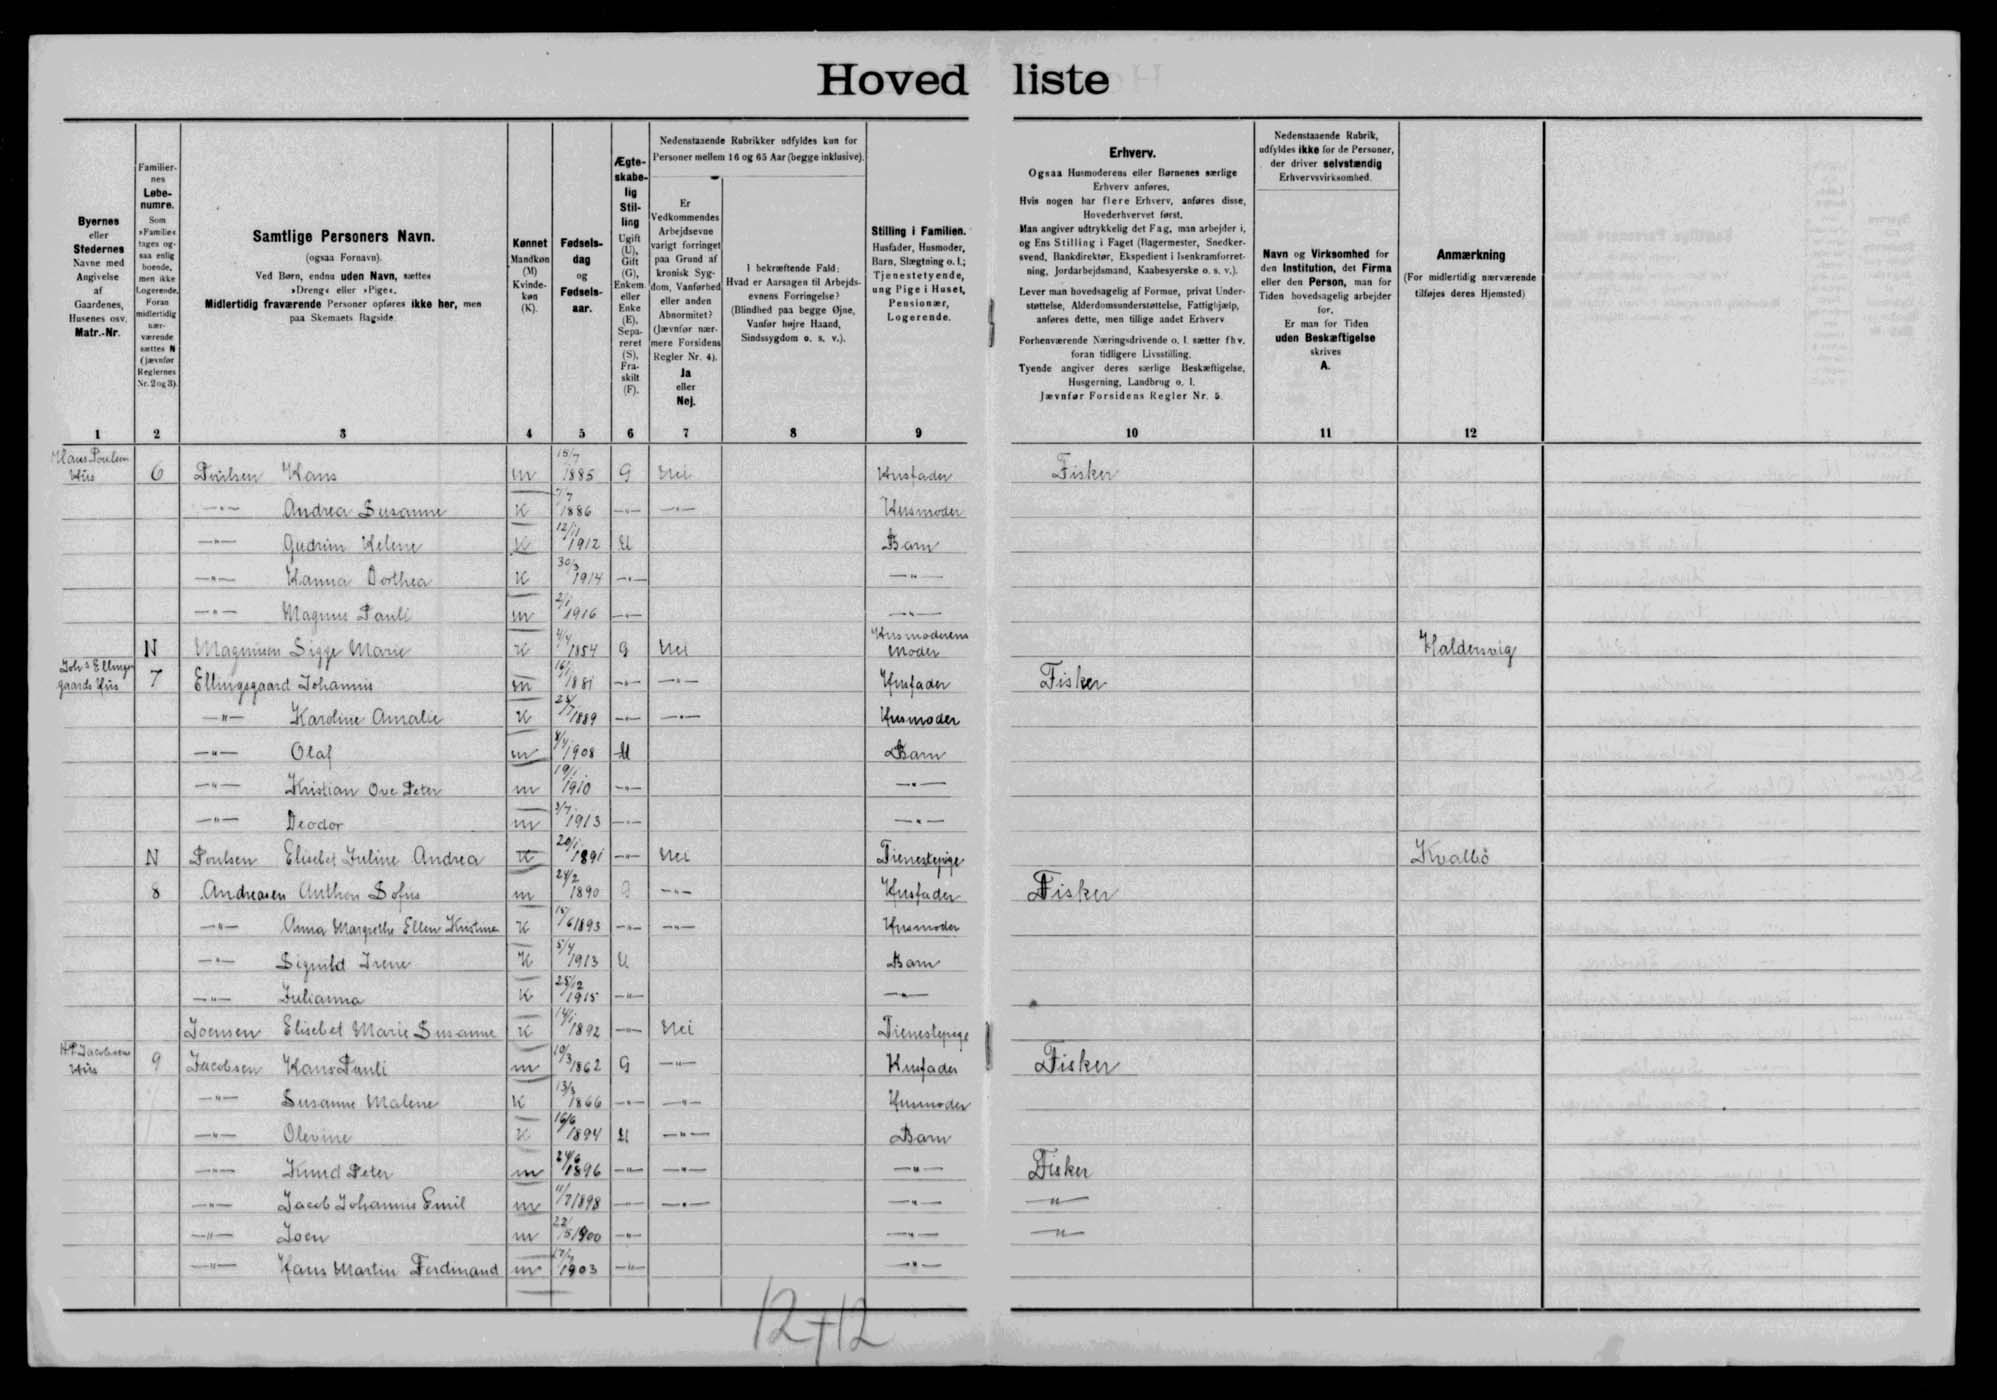 Hovedliste
Byernes
eller
Stedernes
Navne med
Angivelse
af
Gaardenes,
Husenes osv.
Matr.-Nr.
Familier-
nes
Løbe-
numre.
Som
»Familie«
tages og-
saa enlig
boende,
men ikke
Logerende.
Foran
midlertidig
nær-
værende
sættes N
(jævnfør
Reglernes
Nr. 2 og 3).
Samtlige Personers Navn.
(ogsaa Fornavn).
Ved Børn, endnu uden Navn, sættes
»Dreng« eller »Pige«.
Midlertidig fraværende Personer opføres ikke her, men
paa Skemaets Bagside.
Kønnet
Mandkøn
(M)
Kvinde-
køn
(K).
Fødsels-
dag
og
Fødsels-
aar.
Ægte-
skabe-
lig
Stil-
ling
Ugift
(U),
Gift
(G),
Enkem.
eller
Enke
(E),
Sepa-
reret
(S),
Fra-
skilt
(F).
Nedenstaaende Rubrikker udfyldes kun for
Personer mellem 16 og 65 Aar (begge inklusive).
Er
Vedkommendes
Arbejdsevne
varigt forringet
paa Grund af
kronisk Syg-
dom, Vanførhed
eller anden
Abnormitet?
(Jævnfør nær-
mere Forsidens
Regler Nr. 4).
Ja
eller
Nej.
I bekræftende Fald:
Hvad er Aarsagen til Arbejds-
evnens Forringelse?
(Blindhed paa begge Øjne,
Vanfør højre Haand,
Sindssygdom o. s. v.).
Stilling i Familien.
Husfader, Husmoder,
Barn, Slægtning o. l.;
Tjenestetyende,
ung Pige i Huset,
Pensionær,
Logerende.
Erhverv.
Ogsaa Husmoderens eller Børnenes særlige
Erhverv anføres.
Hvis nogen har flere Erhverv, anføres disse,
Hovederhvervet først.
Man angiver udtrykkelig det Fag, man arbejder i,
og Ens Stilling i Faget (Bagermester, Snedker-
svend, Bankdirektør, Ekspedient i Isenkramforret-
ning, Jordarbejdsmand, Kaabesyerske o. s. v.).
Lever man hovedsagelig af Formue, privat Under-
støttelse, Alderdomsunderstøttelse, Fattighjælp,
anføres dette, men tillige andet Erhverv.
Forhenværende Næringsdrivende o. l. sætter fhv.
foran tidligere Livsstilling.
Tyende angiver deres særlige Beskæftigelse,
Husgerning, Landbrug o. l.
Jævnfør Forsidens Regler Nr. 5.
Nedenstaaende Rubrik,
udfyldes ikke for de Personer,
der driver selvstændig
Erhvervsvirksomhed.
Navn og Virksomhed for
den Institution, det Firma
eller den Person, man for
Tiden hovedsagelig arbejder
for.
Er man for Tiden
uden Beskæftigelse
skrives
A.
Anmærkning
(For midlertidig nærværende
tilføjes deres Hjemsted)
1 2 3 4 5 6 7 8 9 10 11 12
Hans Poulsens Hus 6 Poulsen Hans m 15/7 1885 G Nei Husfader Fisker
—"— Andrea Susanne K 7/7 1886 —"— —"— Husmoder
—"— Gudrun Helene K 12/11 1912 U Barn
—"— Hanna Dorthea K 30/3 1914 —"— —"—
—"— Magnus Pauli m 2/1 1916 —"— —"—
N Magnusen Sigge Marie K 4/4 1854 G Nei Husmoderens Moder Haldersvig
Johs Ellingsgaards Hus 7 Ellingsgaard Johannis m 1881 —"— —"— Husfader Fisker
—"— Karoline Amalie K 28/7 1889 —"— —"— Husmoder
—"— Olaf m 8/4 1908 U Barn
—"— Kristian Ove Peter m 19/1 1910 —"— —"—
—"— Deodor m 3/7 1913 —"— —"—
N Poulsen Elisebet Juline Andrea K 20/1 1891 —"— Nei Tienestepige Kvalbö
8 Andreasen Anthon Sofus m 24/2 1890 G —"— Husfader Fisker
—"— Anna Margrethe Ellen Kristine K 15/6 1893 —"— —"— Husmoder
—"— Signild Irene K 5/4 1913 U Barn
—"— Julianna K 25/12 1915 —"— —"—
Joensen Elisebet Marie Susanne K 14/1 1892 —"— Nei Tienestepige
H.P. Jacobsens Hus 9 Jacobsen Hans Pauli m 19/3 1862 G —"— Husfader Fisker
—"— Susanne Malene K 13/3 1866 —"— —"— Husmoder
—"— Olevine K 16/6 1894 U —"— Barn
—"— Knud Peter m 24/6 1896 —"— —"— —"— Fisker
—"— Jacob Johannus Emil m 11/7 1898 —"— —"— —"— —"—
—"— Joen m 22/5 1900 —"— —"— —"—
—"— Hans Martin Ferdinand m 17/7 1903 —"— —"—
12+12